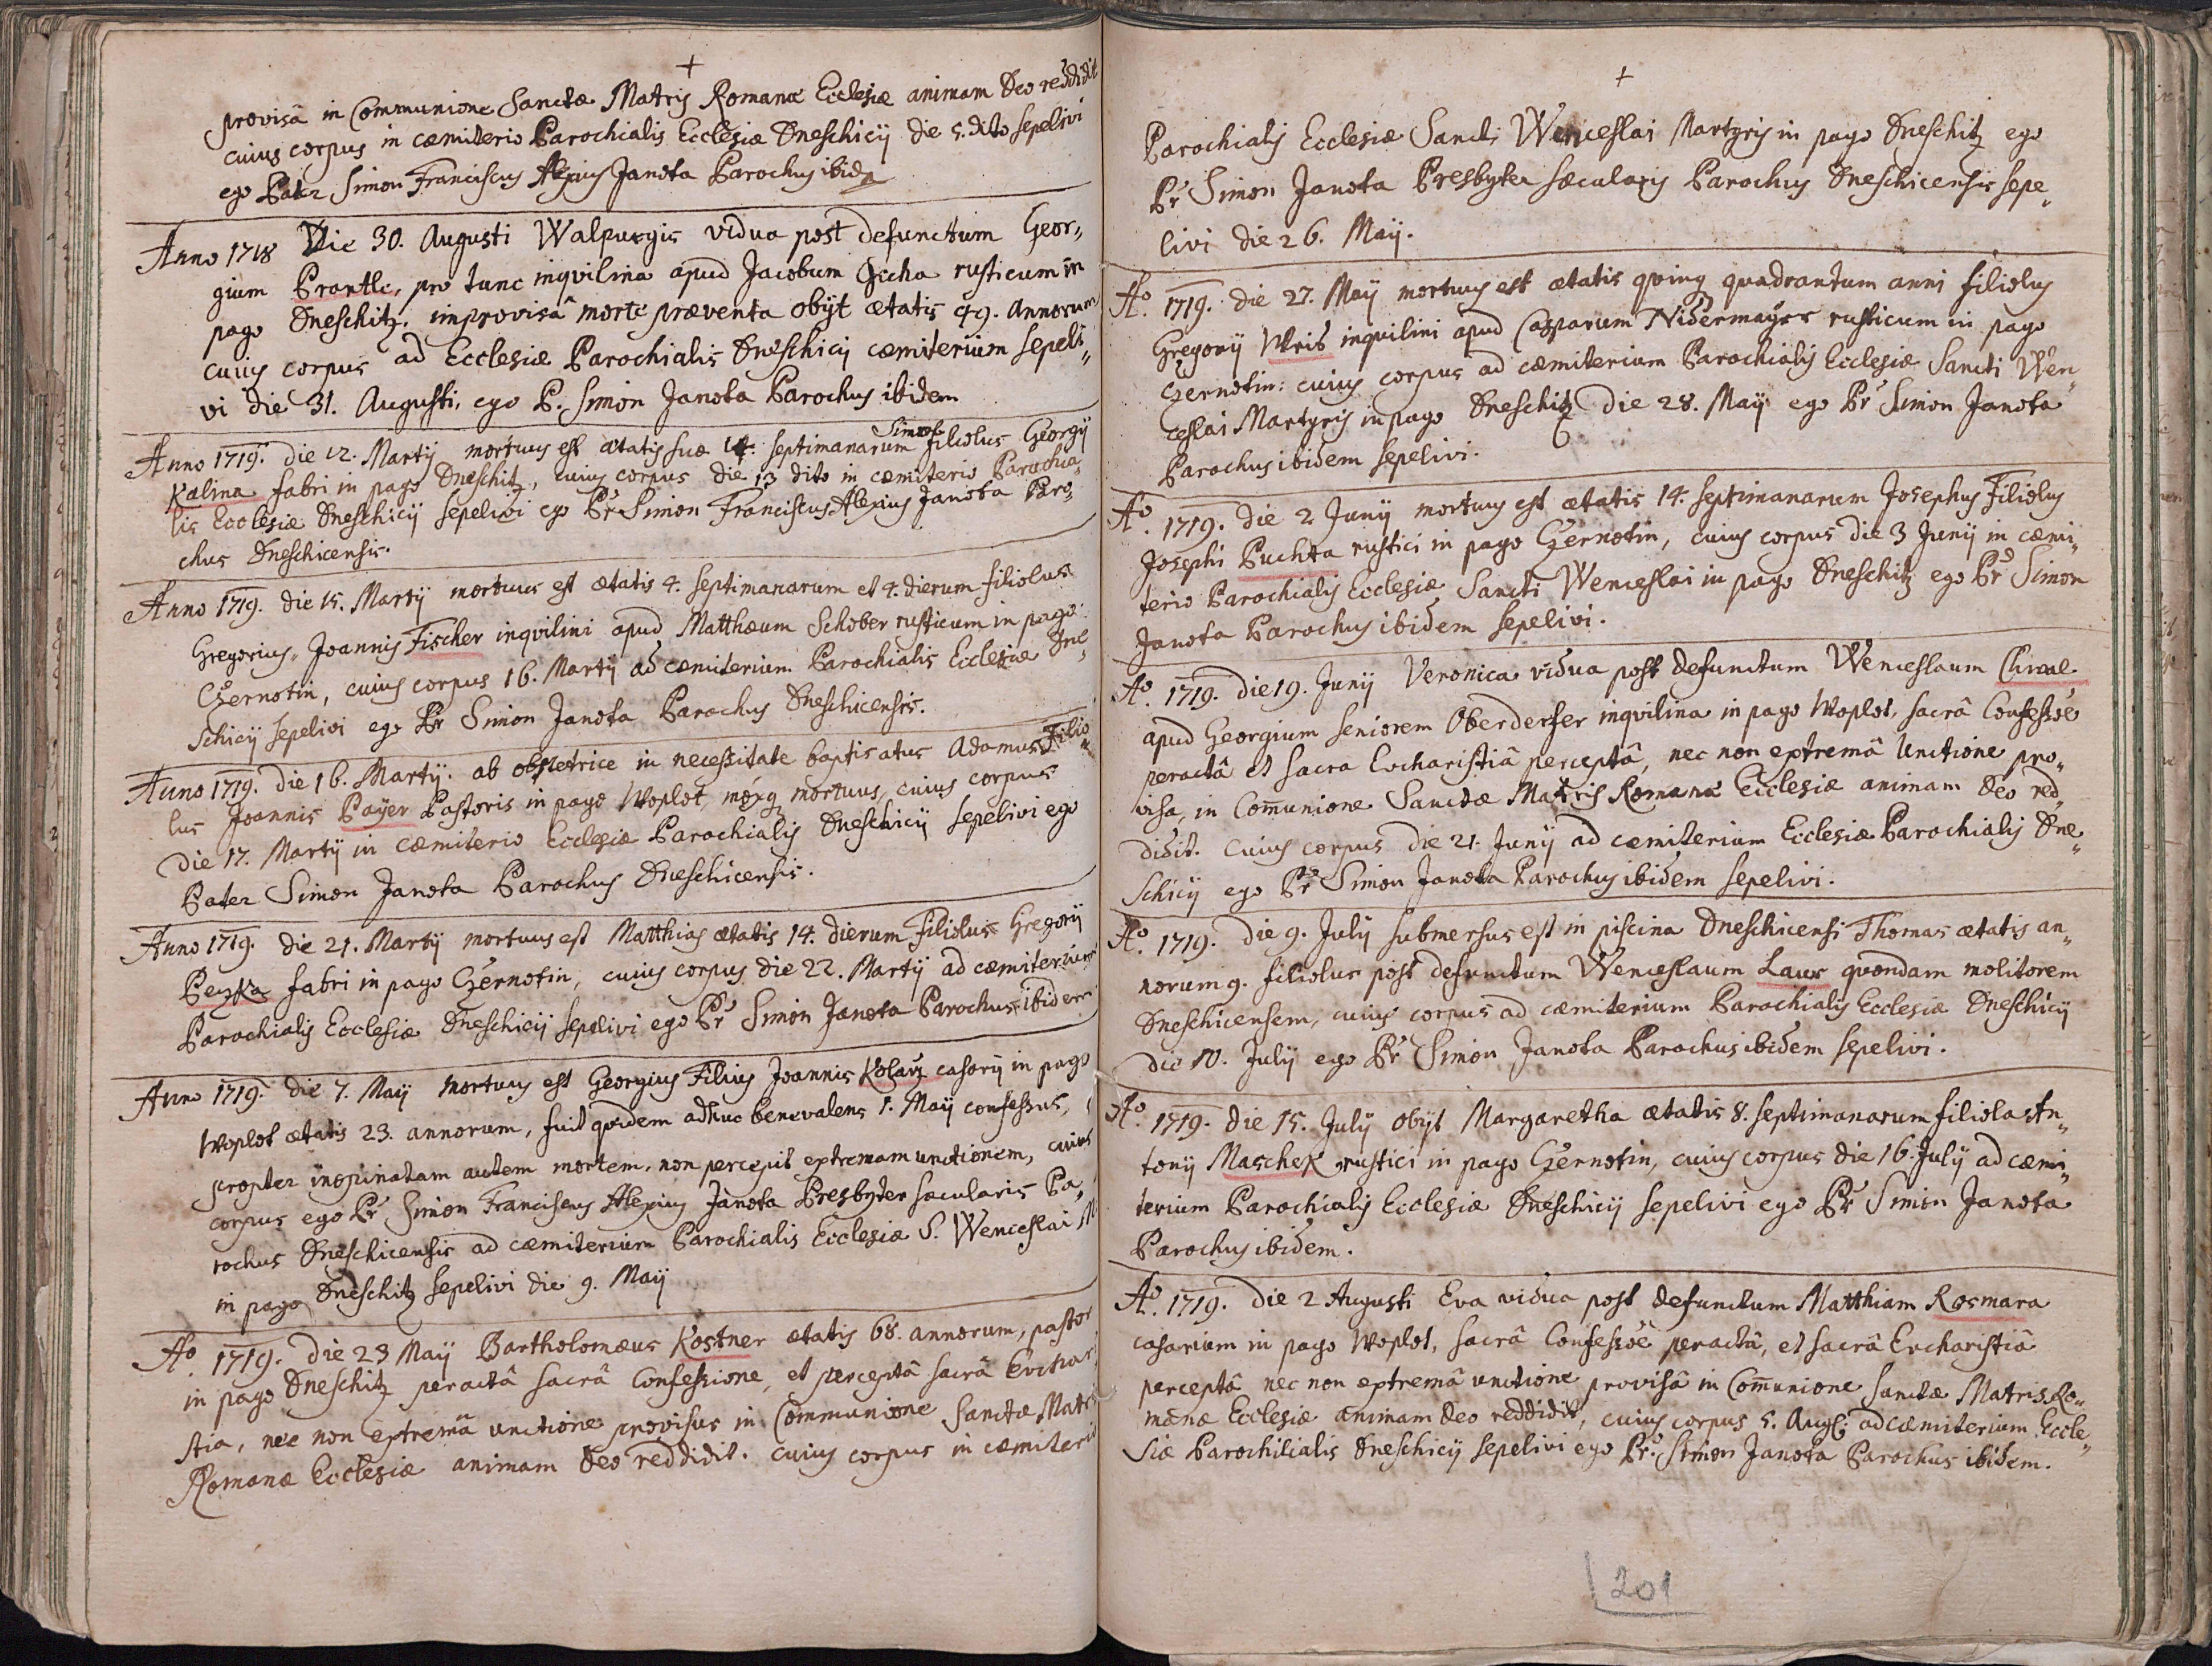 +
provisâ in Communione Sanctæ Matris Romanæ Ecclesiæ animam Deo reddidit
cuius corpus in cæmiterio Parochialis Ecclesiæ Dneschicÿ die 5. dito sepelivi
ego Pater Simon Franciscus Alexius Janota Parochus ibid
Anno 1718 Die 30. Augusti Walpurgis vidua post defunctum Geor„
gium Prantle, pro tunc inqvilina apud Jacobum rusticum in
pago Dneschitz. improvisâ morte præventa obÿt ætatis 49. Annorum
cuius corpus ad Ecclesiæ Parochialis Dneschicÿ cæmiterium sepeli„
vi die 31. Augusti, ego P. Simon Janota Parochus ibidem
Anno 1719. die 12. Martÿ mortuus est ætatis suæ septimanarum Simon filiolus Georgÿ
Kalina fabri in pago Dneschitz, cuius corpus die 13 dito in cæmiterio Parochia„
lis Ecclesiæ Dneschicÿ sepelivi ego Pr Simon Franciscus Alexius Janota Paro„
chus Dneschicensis.
Anno 1719. die 15. Martÿ mortuus est ætatis 4. septimanarum et 4. dierum filiolus
Gregorius, Joannis Fischer inqvilini apud Matthæum Schober rusticum in pago
Czernotin, cuius corpus 16. Martÿ ad cæmiterium Parochialis Ecclesiæ Dne„
schicÿ sepelivi ego Pr Simon Janota Parochus Dneschicensis.
Anno 1719. die 16. Martÿ. ab obstetrice in necessitate baptisatus Adamus Filio„
lus Joannis Payer Pastoris in pago Woplot, moxq mortuus, cuius corpus
die 17. Martÿ in cæmiterio Ecclesiæ Parochialis Dneschicÿ sepelivi ego
Pater Simon Janota Parochus Dneschicensis.
Anno 1719. die 21. Martÿ mortuus est Matthias ætatis 14. dierum Filiolus Gregorÿ
Peczka fabri in pago Czernotin, cuius corpus die 22. Martÿ ad cæmiterium
Parochialis Ecclesiæ Dneschicÿ sepelivi ego Pr Simon Janota Parochus ibidem
Anno 1719. die 7. Maÿ mortuus est Georgius Filius Joannis Kolarz casarÿ in pago
Woplot ætatis 23. annorum, fuit qvidem adhuc benevalens 1. Maÿ confessus,
propter inopinatam autem mortem, non percepit extremam unctionem, cuius
corpus ego Pr Simon Franciscus Alexius Janota Presbyter sæcularis Pa„
rochus Dneschicensis ad cæmiterium Parochialis Ecclesiæ S. Wenceslai M
in pago Dneschitz sepelivi die 9. Maÿ
Ao 1719. die 23 Maÿ Bartholomæus Kostner ætatis 68. annorum, pastor
in pago Dneschitz peractâ sacrâ Confessione, et perceptâ sacrâ Euchari
stia, nec non extremâ unctione provisus in Communione Sanctæ Matris
Romanæ Ecclesiæ animam Deo reddidit. cuius corpus in cæmiterio
+
Parochialis Ecclesiæ Sancti Wenceslai Martyris in pago Dneschitz ego
Pr Simon Janota Presbyter sæcularis Parochus Dneschicensis sepe„
livi die 26. Maÿ.
Ao. 1719. die 27. Maÿ mortuus est ætatis qvinq quadrantum anni filiolus
Gregorÿ Wris inquilini apud Casparum Nidermayer rusticum in pago
Czernotin: cuius corpus ad cæmiterium Parochialis Ecclesiæ Sancti Wen„
ceslai Martyris in pago Dneschitz die 28. Maÿ ego Pr Simon Janota
Parochus ibidem sepelivi.
Ao. 1719. die 2 Junÿ mortuus est ætatis 14. septimanarum Josephus Filiolus
Josephi Puchta rustici in pago Czernotin, cuius corpus die 3 Junÿ in cæmi„
terio Parochialis Ecclesiæ Sancti Wenceslai in pago Dneschitz ego Pr Simon
Janota Parochus ibidem sepelivi.
Ao. 1719. die 19. Junÿ Veronica vidua post defunctum Wenceslaum
apud Georgium seniorem Oberderfer inqvilina in pago Woplot, sacrâ Confessoe
peractâ et sacra Eucharistiâ perceptâ, nec non extremâ Unctione pro„
visa, in Comunione Sanctæ Matris Romanæ Ecclesiæ animam Deo red„
didit. Cuius corpus die 21. Junÿ ad cæmiterium Ecclesiæ Parochialis Dne„
schicÿ ego Pr Simon Janota Parochus ibidem sepelivi.
Ao. 1719. die 9. Julÿ submersus est in piscina Dneschicensi Thomas ætatis an„
norum 9. filiolus post defunctum Wenceslaum Laux quondam molitorem
Dneschicensem, cuius corpus ad cæmiterium Parochialis Ecclesiæ Dneschicÿ
die 10. Julÿ ego Pr Simon Janota Parochus ibidem sepelivi.
Ao. 1719. die 15. Julÿ obÿt Margaretha ætatis 8. septimanarum filiola An„
tonÿ Maschek rustici in pago Czernotin, cuius corpus die 16. Julÿ ad cæmi„
terium Parochialis Ecclesiæ Dneschicÿ sepelivi ego Pr Simon Janota
Parochus ibidem.
Ao. 1719. die 2 Augusti Eva vidua post defunctum Matthiam Rosmara
casarium in pago Woplot, sacrâ Confessoe peractâ, et sacrâ Eucharistiâ
perceptâ nec non extremâ unctione provisâ in Comunione sanctæ Matris Ro„
manæ Ecclesiæ animam Deo reddidit, cuius corpus 5. Aug: ad cæmiterium Eccle„
siæ Parochilialis Dneschicÿ sepelivi ego Pr. Simon Janota Parochus ibidem.
201